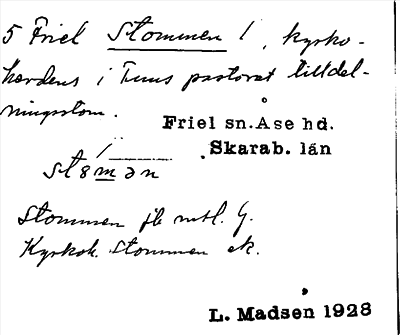 5 Friel Stommen 1, kyrko-
herdens i Tuns pastorat tilldel-
ningsstom.
Friel sn. Åse hd.
Skarab. län
stómən
Stommen jb mtl. G.
Kyrkoh. Stommen ek.
L. Madsen 1928